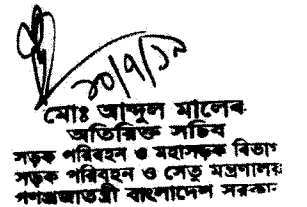 ২০/৭/১৯
মোঃ আব্দুল মালেক
অতিরিক্ত সচিব
সড়ক পরিবহন ও মহাসড়ক বিভাগ
সড়ক পরিবহন ও সেতু মন্ত্রণালয়
গণপ্রজাতন্ত্রী বাংলাদেশ সরকার